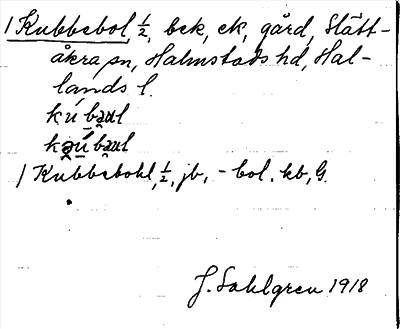 1 Kubbebol, 1/2, bek, ek, gård, Slätt-
åkra sn, Halmstads hd, Hal-
lands l.
kúbaul
kəúbaul
1 Kubbebohl, 1/2, jb, -bol, kb, G.
J. Sahlgren 1918